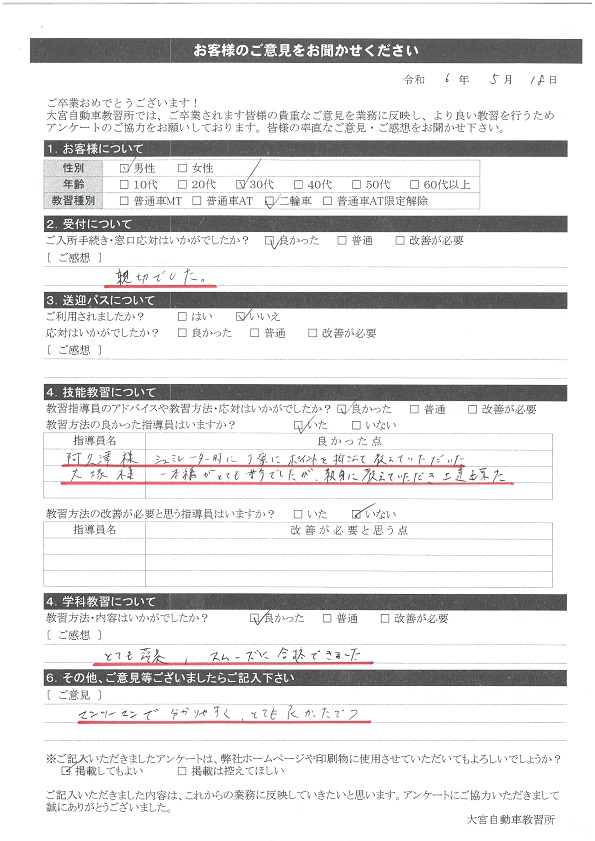 お客様のご意見をお聞かせください
令和 6 年 5 月 18 日
ご卒業おめでとうございます！
大宮自動車教習所では、ご卒業されます皆様の貴重なご意見を業務に反映し、より良い教習を行うため
アンケートのご協力をお願いしております。皆様の率直なご意見・ご感想をお聞かせ下さい。
1. お客様について
性別 ☑男性 □女性
年齢 □10代 □20代 ☑30代 □40代 □50代 □60代以上
教習種別 □普通車MT □普通車AT ☑二輪車 □普通車AT限定解除
2. 受付について
ご入所手続き・窓口応対はいかがでしたか？ ☑良かった □普通 □改善が必要
[ ご感想 ]
親切でした。
3. 送迎バスについて
ご利用されましたか？ □はい ☑いいえ
応対はいかがでしたか？ □良かった □普通 □改善が必要
[ ご感想 ]
4. 技能教習について
教習指導員のアドバイスや教習方法・応対はいかがでしたか？ ☑良かった □普通 □改善が必要
教習方法の良かった指導員はいますか？ ☑いた □いない
指導員名 良かった点
阿久津様 シュミレーター時に丁寧にポイントを抑えて教えていただいた
大塚様 一本橋がとても苦手でしたが、親身に教えていただき上達出来た
教習方法の改善が必要と思う指導員はいますか？ □いた ☑いない
指導員名 改善が必要と思う点
4. 学科教習について
教習方法・内容はいかがでしたか？ ☑良かった □普通 □改善が必要
[ ご感想 ]
とても 、スムーズに合格できました
6. その他、ご意見等ございましたらご記入下さい
[ ご意見 ]
マンツーマンで分かりやすく、とても良かったです
※ご記入いただきましたアンケートは、弊社ホームページや印刷物に使用させていただいてもよろしいでしょうか？
☑掲載してもよい □掲載は控えてほしい
ご記入いただきました内容は、これからの業務に反映していきたいと思います。アンケートにご協力いただきまして
誠にありがとうございました。
大宮自動車教習所